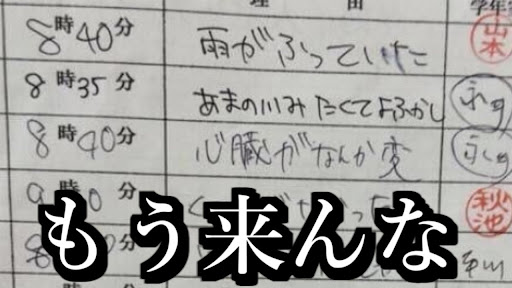 理 由 学年
8時40分 雨がふっていた 山本
8時35分 あまの川みたくてよふかし
8時40分 心臓がなんか変
時 0分 秋池
もう来んな
時 分